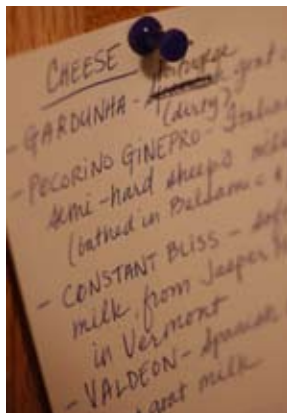 CHEESE
- GARDUNHA - goat
(dirty?)
- PECORINO GINEPRO - Italian
semi-hard sheep's milk
(bathed in Balsamic &
- CONSTANT BLISS - soft
milk, from Jasper
in Vermont
- VALDEON - Spanish
goat milk